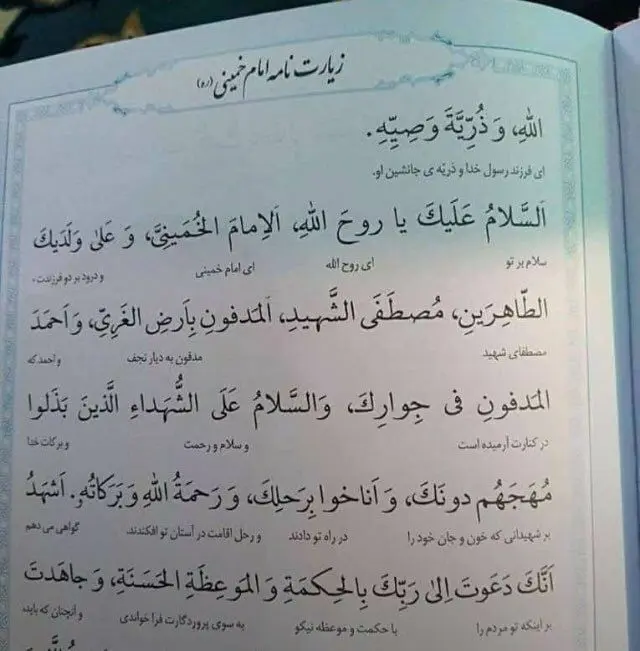 زیارت نامه امام خمینی (ره)
اللهِ، وَ ذُرِّيَّةَ وَصِيِّهِ.
ای فرزند رسول خدا و ذریّه ی جانشین او.
اَلسَّلامُ عَلَيكَ يا روحَ اللهِ، اَلاِمامَ الخُمَينِيَّ، وَ عَلىٰ وَلَدَيكَ
سلام بر تو ای روح الله ای امام خمینی و درود بر دو فرزندت،
الطّاهِرَينِ، مُصطَفَى الشَّهيدِ، اَلمَدفونِ بِاَرضِ الغَرِيِّ، وَ اَحمَدَ
مصطفای شهید مدفون به دیار نجف و احمد که
المَدفونِ فى جِوارِكَ، وَالسَّلامُ عَلَى الشُّهَداءِ الَّذينَ بَذَلوا
در کنارت آرمیده است و سلام و رحمت و برکات خدا
مُهَجَهُم دونَكَ، وَ اَناخوا بِرَحلِكَ، وَ رَحمَةُ اللهِ وَ بَرَكاتُهُ. اَشهَدُ
بر شهیدانی که خون و جان خود را در راه تو دادند و رحل اقامت در آستان تو افکندند. گواهی می دهم
اَنَّكَ دَعَوتَ اِلىٰ رَبِّكَ بِالحِكمَةِ وَ المَوعِظَةِ الحَسَنَةِ، وَ جاهَدتَ
بر اینکه تو مردم را با حکمت و موعظه نیکو به سوی پروردگارت فرا خواندی و آنچنان که باید،